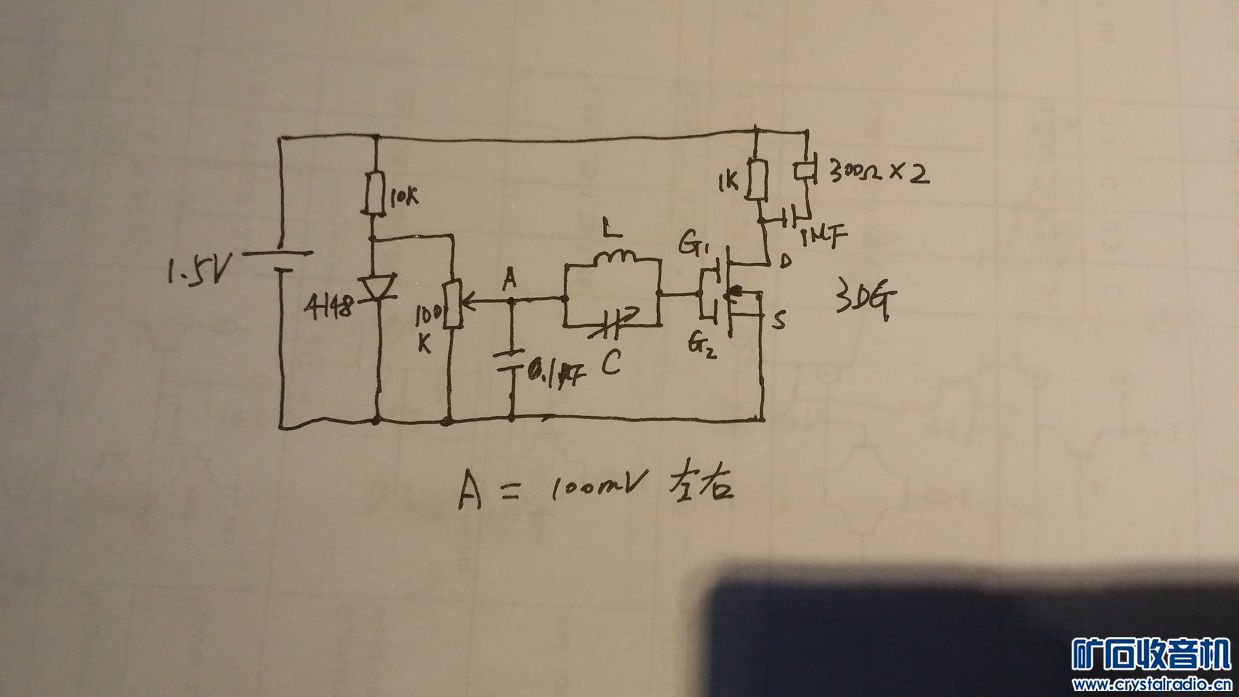 1.5V
10K
4148
100
K
A
0.1μF
L
C
G₁
G₂
1K
300Ω×2
1MF
D
S
3DG
A = 100mV 左右
矿石收音机
www.crystalradio.cn